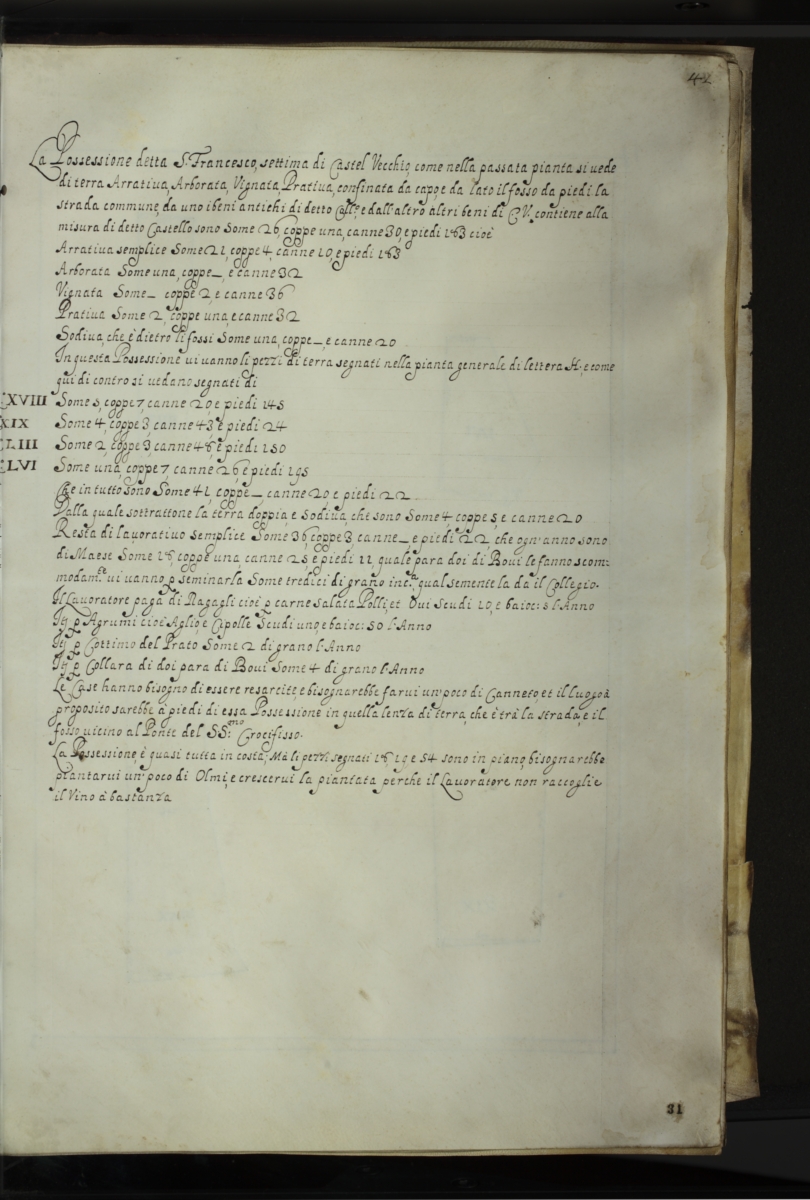 42
La Possessione detta S. Francesco, settima di Castel Vecchio, come nella passata pianta si uede
di terra Arratiua, Arborata, Vignata, Pratiua, confinata da capo, e da lato il fosso, da piedi la
strada commune, da uno i beni antichi di detto Coll.º e dall'altro altri beni di contiene alla
misura di detto Castello sono Some 26, coppe una, canne 30, e piedi 163 cioè
Arratiua semplice Some 21, coppe 4, canne 10, e piedi 163
Arborata Some una, coppe _, e canne 32
Vignata Some _ coppe 2, e canne 36
Pratiua Some 2, coppe una, e canne 32
Sodiua, che è dietro li fossi Some una, coppe _, e canne 20
In questa Possessione ui uanno li pezzi di terra segnati nella pianta generale di lettera H, e come
qui di contro si uedano segnati di
XVIII Some 5, coppe 7, canne 20 e piedi 145
XIX Some 4, coppe 3, canne 43, e piedi 24
LIII Some 2, coppe 3, canne 46, e piedi 150
LVI Some una, coppe 7 canne 26, e piedi 195
Che in tutto sono Some 41, coppe _, canne 20 e piedi 22
Dalla quale sottrattone la terra doppia, e Sodiua, che sono Some 4 coppe 5 e canne 20
Resta di lauoratiuo semplice Some 36, coppe 3 canne _ e piedi 22, che ogn'anno sono
di Maese Some 16, coppe una, canne 25, e piedi 11, quale para doi di Boui le fanno scom:
modam.te ui uanno p seminarla Some tredici di grano inc.ª qual semente la da il Collegio.
Il Lauoratore paga di Ragagli cioè p carne salata, Polli, et Oui Scudi 10, e baioc: 5 l'Anno
It. p Agrumi cioè Aglio, e Cipolle Scudi uno, e baioc: 50 l'Anno
It. p Cottimo del Prato Some 2 di grano l'Anno
It. p Collara di doi para di Boui Some 4 di grano l'Anno
Le Case hanno bisogno di essere resarcite, e bisognarebbe farui un poco di Canneto, et il luogo à
proposito sarebbe à piedi di essa Possessione in quella lenza di terra, che è trà la strada, e il
fosso uicino al Ponte del SS.mo Crocifisso.
La Possessione è quasi tutta in costa, Mà li pezzi segnati 18, 19 e 54 sono in piano, bisognarebbe
piantarui un poco di Olmi, e crescerui la piantata perche il Lauoratore non raccoglie
il Vino à bastanza
31